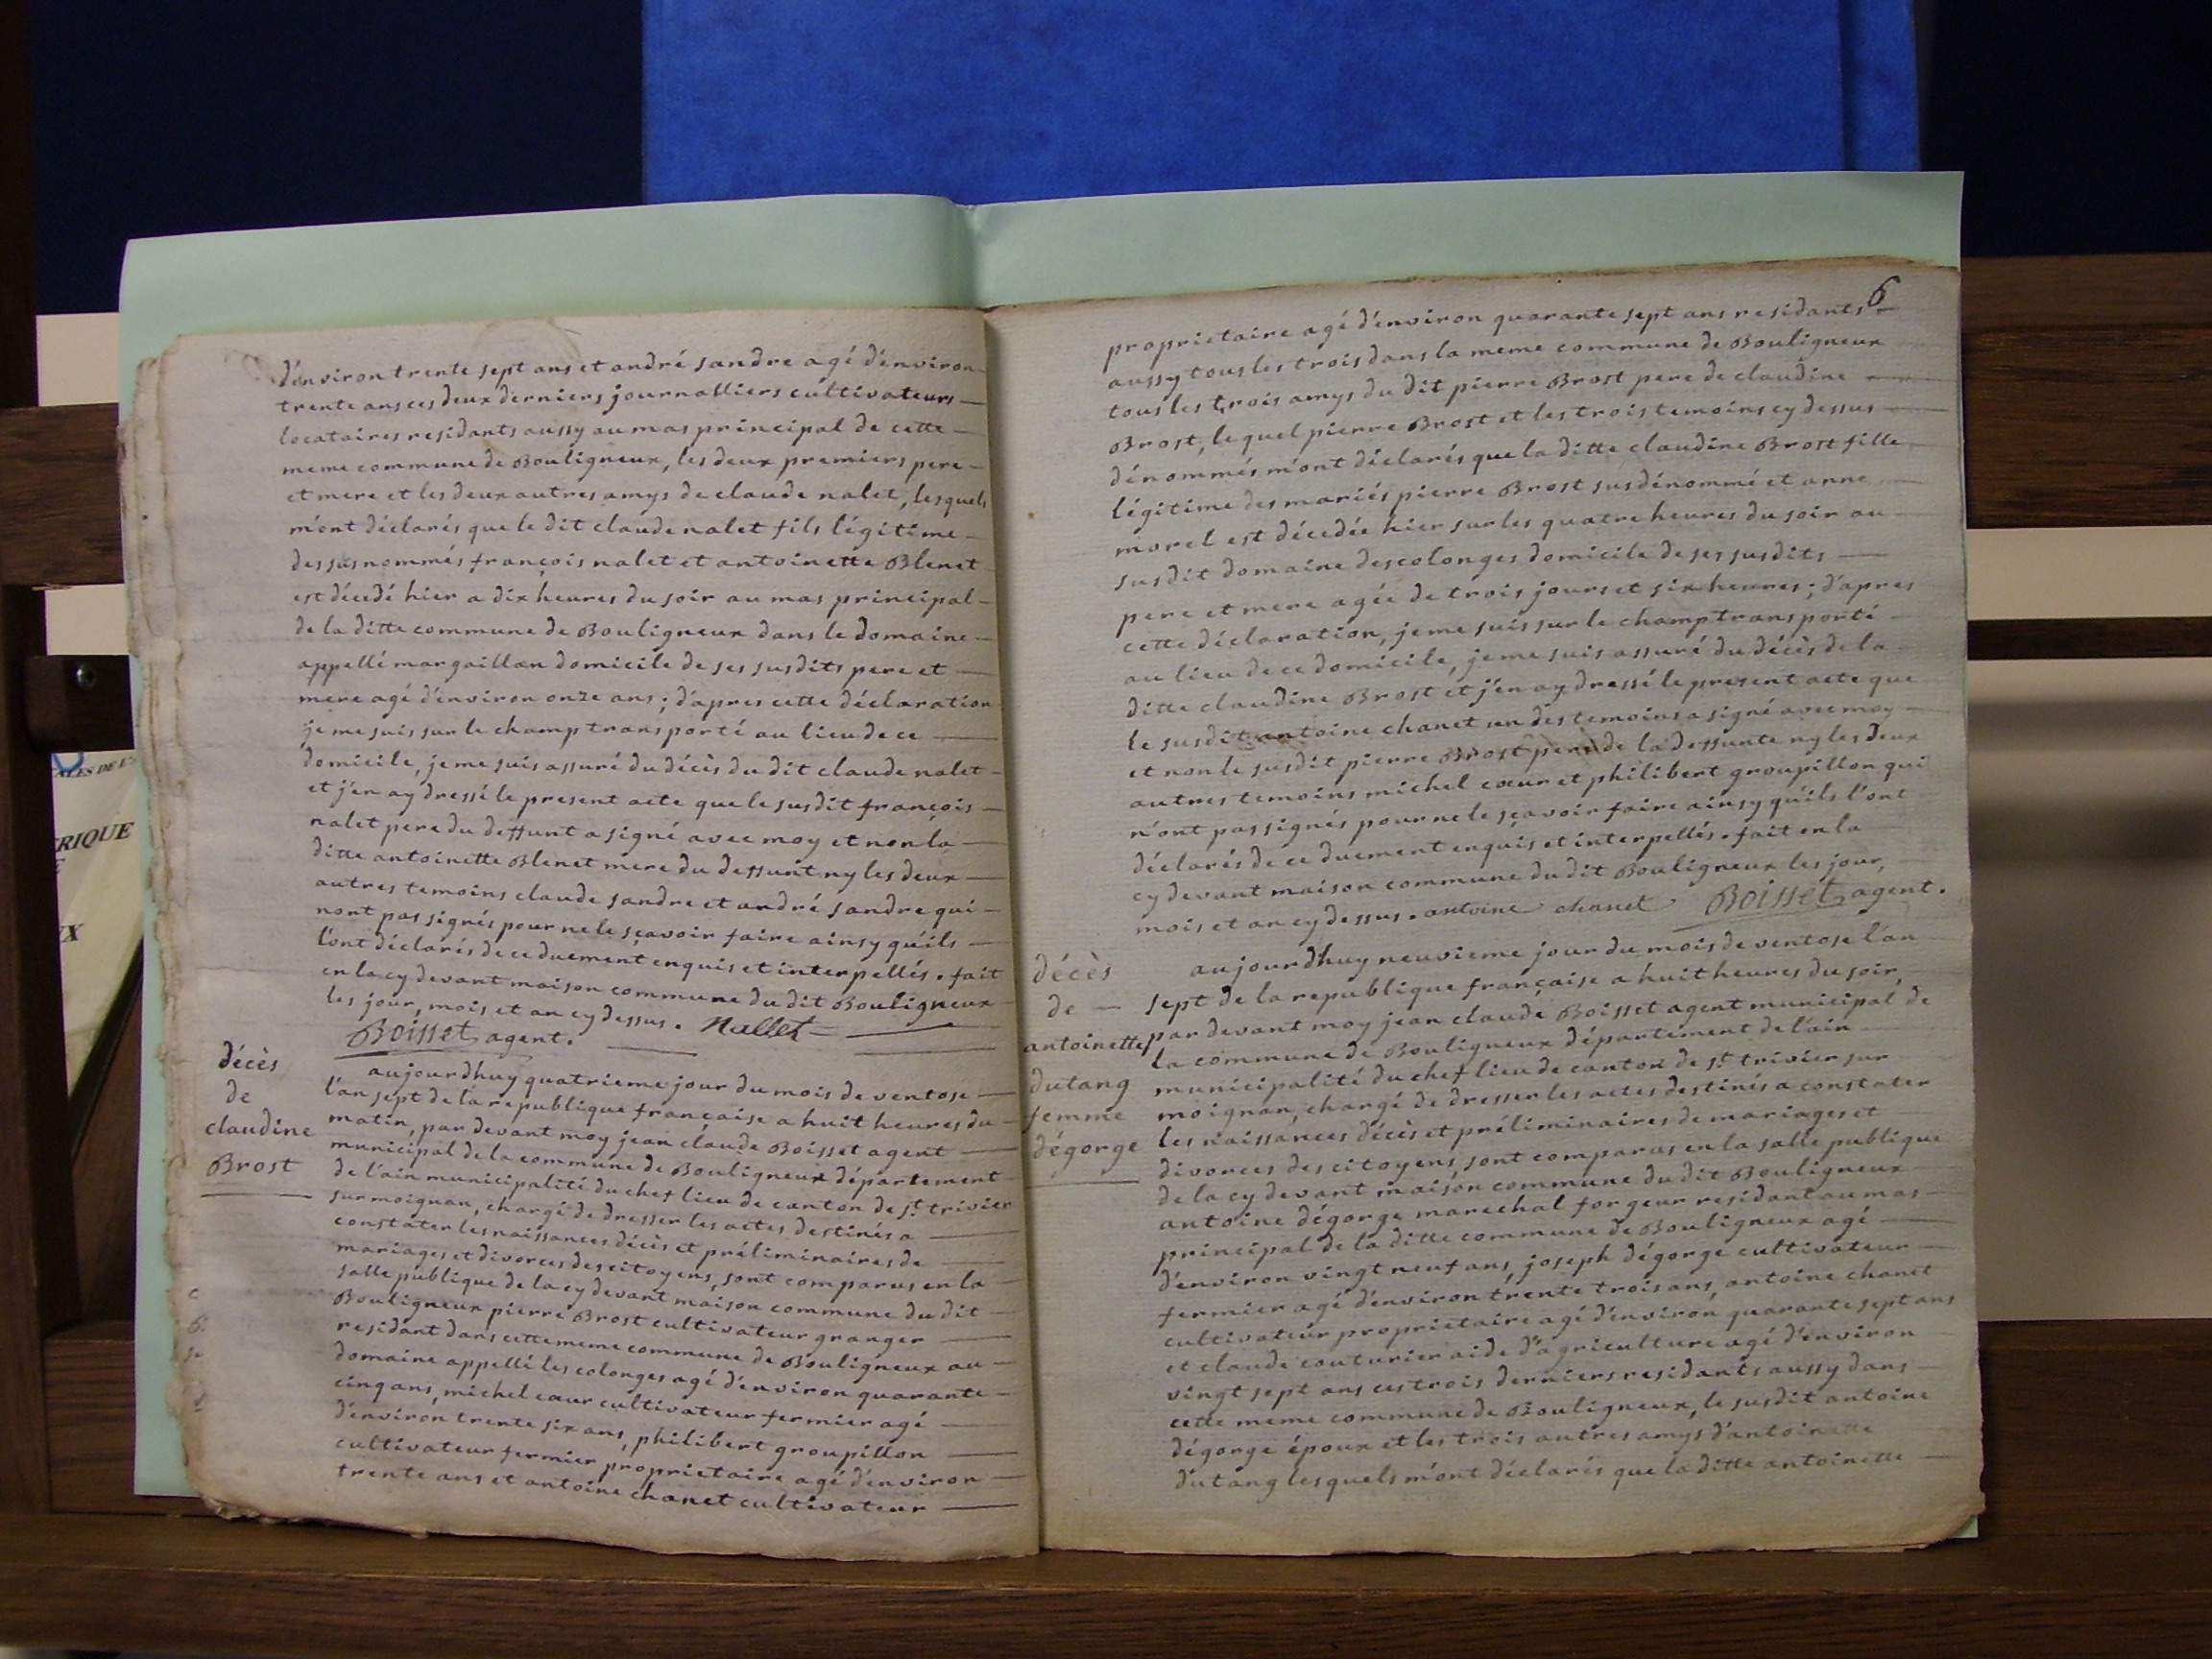 d'environ trente sept ans et andré sandre agé d'environ
trente ans ces deux derniers journalliers cultivateurs
locataires residants aussy au mas principal de cette
meme commune de Bouligneux, les deux premiers pere
et mere et les deux autres amys de claude nalet, lesquels
m'ont déclarés que le dit claude nalet fils légitime
des susnommés françois nalet et antoinette Blenet
est décedé hier a dix heures du soir au mas principal
de la ditte commune de Bouligneux dans le domaine
appellé margaillan domicile de ses susdits pere et
mere agé d'environ onze ans; d'apres cette déclaration
je me suis sur le champ transporté au lieu de ce
domicile, je me suis assuré du décès du dit claude nalet
et j'en ay dressé le present acte que le susdit françois
nalet pere du deffunt a signé avec moy et non la
ditte antoinette Blenet mere du deffunt ny les deux
autres temoins claude sandre et andré sandre qui
nont pas signés pour ne le sçavoir faire ainsy qu'ils
l'ont déclarés de ce duement enquis et interpellés. fait
en la cy devant maison commune du dit Bouligneux
les jour, mois et an cy dessus. Nallet
Boisset agent.
décès
de
claudine
Brost
aujourdhuy quatrieme jour du mois de ventose
l'an sept de la republique française a huit heures du
matin, par devant moy jean claude Boisset agent
municipal de la commune de Bouligneux département
de l'ain municipalité du chef lieu de canton de st. trivier
sur moignan, chargé de dresser les actes destinés a
constater les naissances décès et préliminaires de
mariages et divorces des citoyens, sont comparus en la
salle publique de la cy devant maison commune du dit
Bouligneux pierre Brost cultivateur granger
residant dans cette meme commune de Bouligneux au
domaine appellé les colonges agé d'environ quarante
cinq ans, michel cœur cultivateur fermier agé
d'environ trente six ans, philibert groupillon
cultivateur fermier proprietaire agé d'environ
trente ans et antoine chanet cultivateur
6
proprietaire agé d'environ quarante sept ans residants
aussy tous les trois dans la meme commune de Bouligneux
tous les trois amys du dit pierre Brost pere de claudine
Brost, lequel pierre Brost et les trois temoins cy dessus
dénommés m'ont déclarés que la ditte claudine Brost fille
légitime des mariés pierre Brost susdénommé et anne
morel est décedée hier sur les quatre heures du soir au
susdit domaine des colonges domicile de ses susdits
pere et mere agée de trois jours et six heures; d'apres
cette déclaration, je me suis sur le champ transporté
au lieu de ce domicile, je me suis assuré du décès de la
ditte claudine Brost et j'en ay dressé le present acte que
le susdit antoine chanet un des temoins a signé avec moy
et non le susdit pierre Brost pere de la deffunte ny les deux
autres temoins michel cœur et philibert groupillon qui
n'ont pas signés pour ne le sçavoir faire ainsy qu'ils l'ont
déclarés de ce duement enquis et interpellés. fait en la
cy devant maison commune du dit Bouligneux les jour,
mois et an cy dessus. antoine chanet Boisset agent.
décès
de
antoinette
dutang
femme
dégorge
aujourdhuy neuvieme jour du mois de ventose l'an
sept de la republique française a huit heures du soir,
par devant moy jean claude Boisset agent municipal de
la commune de Bouligneux département de l'ain
municipalité du chef lieu de canton de st. trivier sur
moignan, chargé de dresser les actes destinés a constater
les naissances décès et préliminaires de mariages et
divorces des citoyens, sont comparus en la salle publique
de la cy devant maison commune du dit Bouligneux
antoine dégorge marechal forgeur residant au mas
principal de la ditte commune de Bouligneux agé
d'environ vingt neuf ans, joseph dégorge cultivateur
fermier agé d'environ trente trois ans, antoine chanet
cultivateur proprietaire agé d'environ quarante sept ans
et claude couturier aide d'agriculture agé d'environ
vingt sept ans ces trois derniers residants aussy dans
cette meme commune de Bouligneux, le susdit antoine
dégorge époux et les trois autres amys d'antoinette
dutang lesquels m'ont déclarés que la ditte antoinette
RIQUE